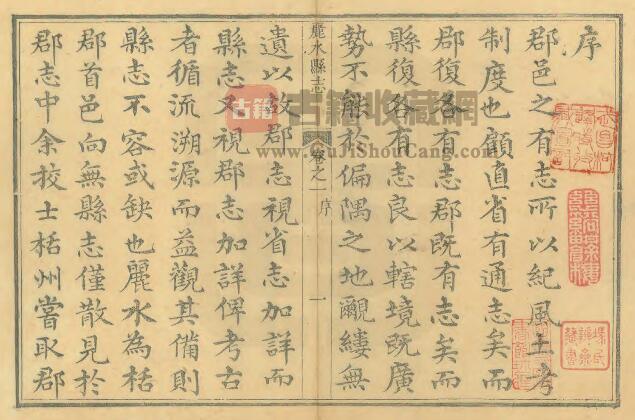 序
郡邑之有志所以紀風土考
制度也顧直省有通志矣而
郡復各有志郡既有志矣而
縣復各有志良以轄境既廣
勢不能於偏隅之地覼縷無
麗水縣志
卷之一 序
一
遺以故郡志視省志加詳而
縣志又視郡志加詳俾考古
者循流溯源而益觀其備則
縣志不容或缺也麗水為栝
郡首邑向無縣志僅散見於
郡志中余挍士栝州嘗取郡
古籍
古籍收藏網
GuJiShouCang.com